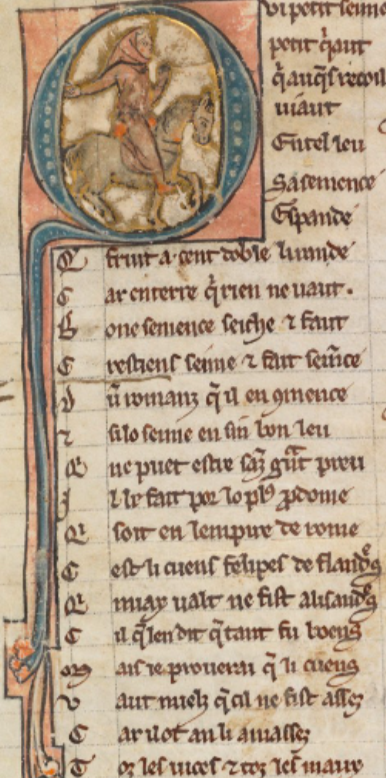 Q ui petit semme
petit q̃aut
q̃ auq̃s recoil
uiaut
En tel leu
Sa semence
Espande
Q fruit a cent doble li rande
C ar en terre q̃ rien ne uaut.
B one semence seiche ⁊ faut
C restiens semme ⁊ fait semēce
D ũ romanz q̃ il en ꝯmence
⁊ si lo semme en sin bon leu
Q ne puet estre saz g̃nt preu
I l le fait por lo pl⁹ ꝓdome
Q soit en lempire de rome
C est li cuens felipes de flandꝭs
Q miax ualt ne fist alisandꝭs
C il q̃ len dit q̃ tant fu boens
M ais ie prouerai q̃ li cuens
V aut mielz q̃ cil ne fist assez
C ar il ot an lui amassez
T oz les uices ⁊ toz les maux